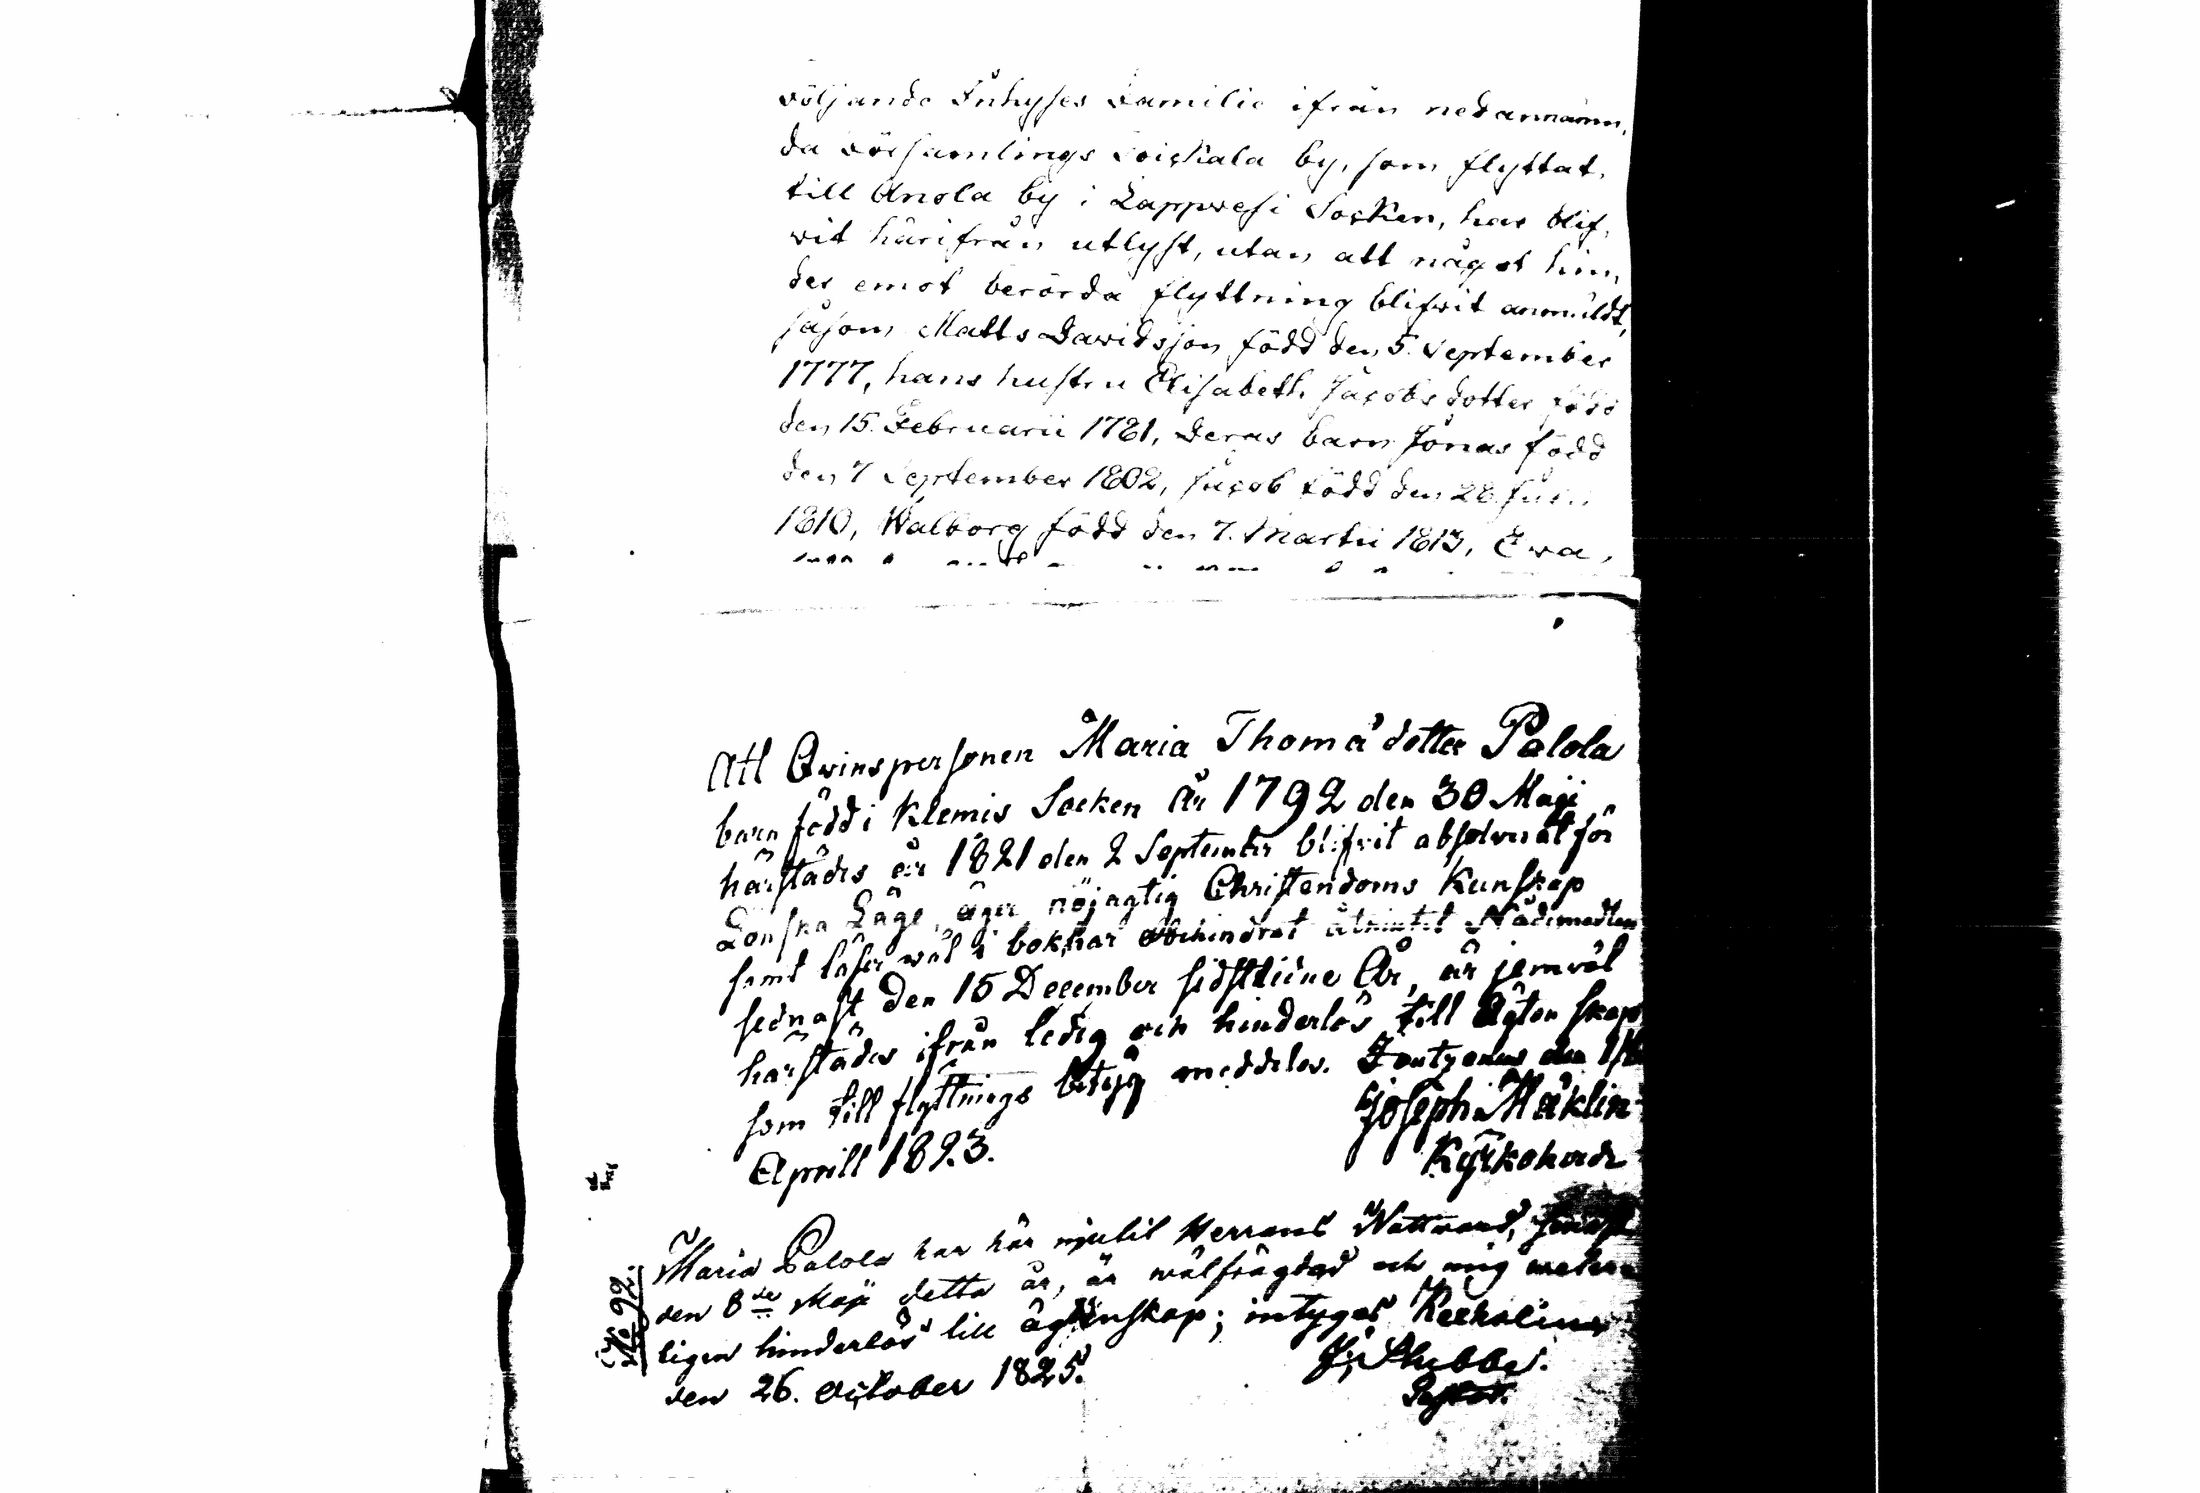 Följande Inhyses Familie ifrån nedannämn,
da Församlings Loiskala by, som flyttat,
till Anola by i Lappvesi Socken, har blif,
vit härifrån utlyst, utan att något hin,
der emot berörda flyttning blifvit anmäldt,
såsom Matts Davidsson född den 5. September
1777, hans hustru Elisabeth Jacobsdotter född
den 15. Februarii 1781, Deras barn Jonas född
den 7 September 1802, Jacob född den 28
1810, Walborg född den 7. Martii 1813, Ewa,
Att Qvinspersonen Maria Thomädotter Palola
barn född i Klemis Socken År 1792 den 30 Maji
härstädes år 1821 den 2 September blifvit absolverat för
Lönska Läge, äger nöjagtig Christendoms Kunskap
samt läser wäl i bok, har obehindrat Nådemedlen
sednast den 15 December sidstledne År, är jemväl
härstädes ifrån ledig och hinderlös till Ägtenskap
som till flyttnings betyg meddelas. den
Aprill 1823. Joseph Mäklin
Kyrkoherde
No 92.
Maria Palola har här njutit Herrans Nattvard, senast
den 8de Maji detta år, är wälfrägdad och mig weter-
ligen hinderlös till ägtenskap; intygas Kexholm
den 26. October 1825. J. Stubbe.
Pastor.